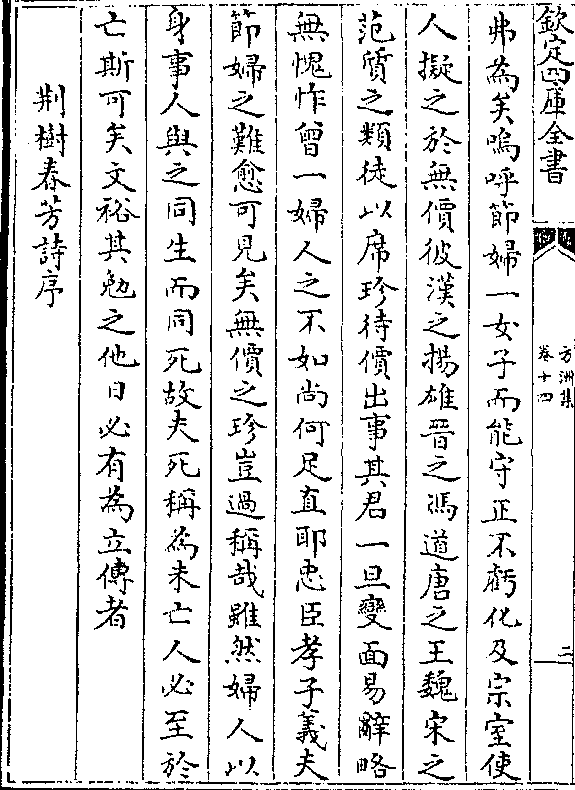 欽定四庫全書
方洲集
卷十四
二
弗為矣嗚呼節婦一女子而能守正不虧化及宗室使
人擬之於無價彼漢之揚雄晉之馮道唐之王魏宋之
范質之類徒以席珍待價出事其君一旦變面易辭略
無愧怍曾一婦人之不如尚何足直耶忠臣孝子義夫
節婦之難愈可見矣無價之珍豈過稱哉雖然婦人以
身事人與之同生而同死故夫死稱為未亡人必至於
亡斯可矣文裕其勉之他日必有為立傳者
荆樹春芳詩序